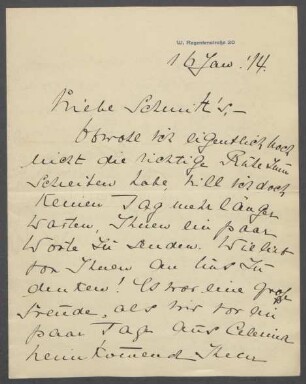 W. Regentenstraße 20
16 Jan. '14.
Liebe Schmitt's, –
Obwohl ich eigentlich noch
nicht die richtige Ruhe zum
Schreiben habe, will ich doch
keinen Tag mehr länger
warten, Ihnen ein paar
Worte zu senden. Wie lieb
von Ihnen an uns zu
denken! Es war eine große
Freude, als wir vor ein
paar Tagen aus Celerina
heimkommend Ihren